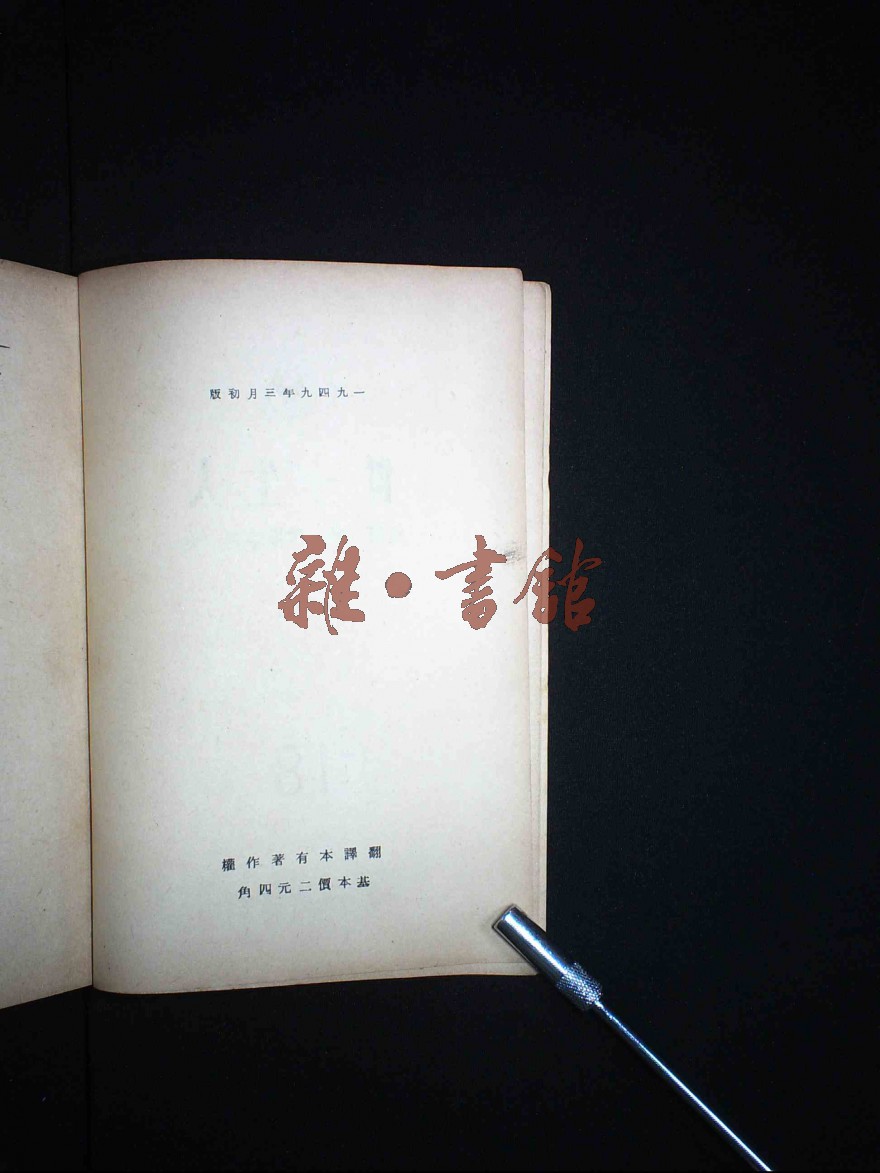 一九四九年三月初版
雜·書館
翻譯本有著作權
基本價二元四角